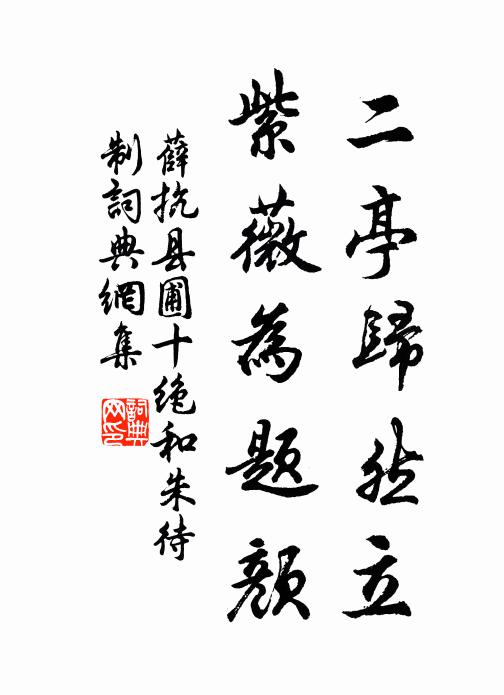 二亭歸然立
紫薇為題顏
薛抗县圃十绝和朱待
制詞典網集
詞典
网印